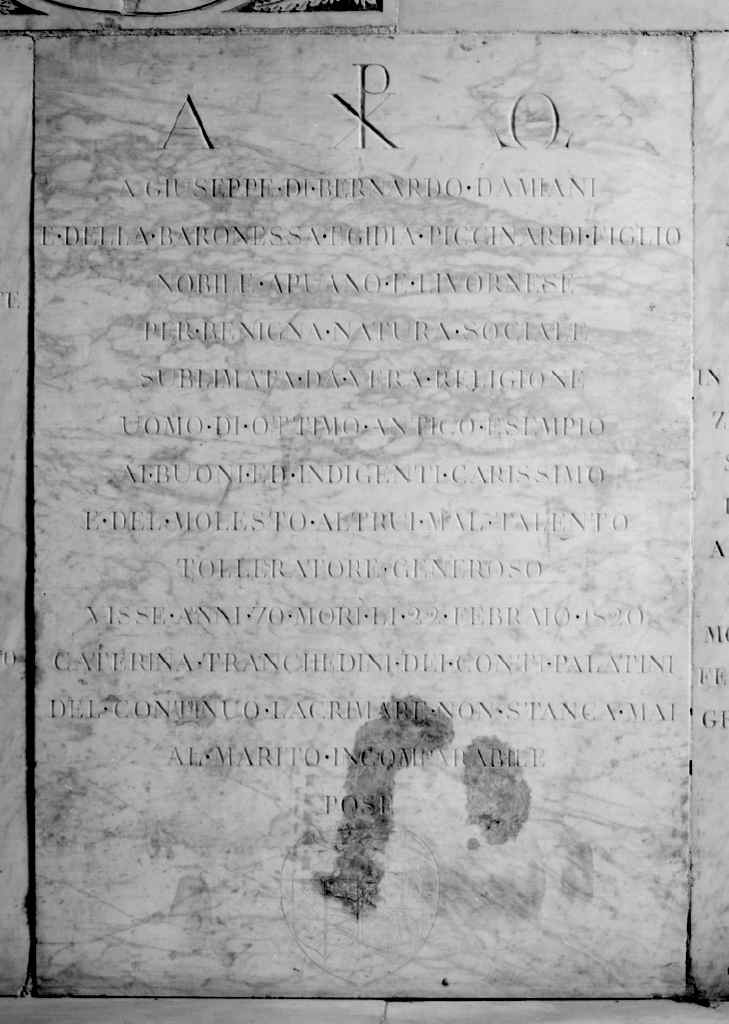 Α ☧ Ω
A·GIUSEPPE·DI·BERNARDO·DAMIANI
E·DELLA·BARONESSA·EGIDIA·PICCINARDI·FIGLIO
NOBILE·APUANO·E·LIVORNESE
PER·BENIGNA·NATURA·SOCIALE
SUBLIMATA·DA·VERA·RELIGIONE
UOMO·DI·OTTIMO·ANTICO·ESEMPIO
AI·BUONI·ED·INDIGENTI·CARISSIMO
E·DEL·MOLESTO·ALTRUI·MAL·TALENTO
TOLLERATORE·GENEROSO
VISSE·ANNI·70·MORÌ·LI·22·FEBRAIO·1820
CATERINA·TRANCHEDINI·DEI·CONTI·PALATINI
DEL·CONTINUO·LACRIMARE·NON·STANCA·MAI
AL·MARITO·INCOMPARABILE
POSE